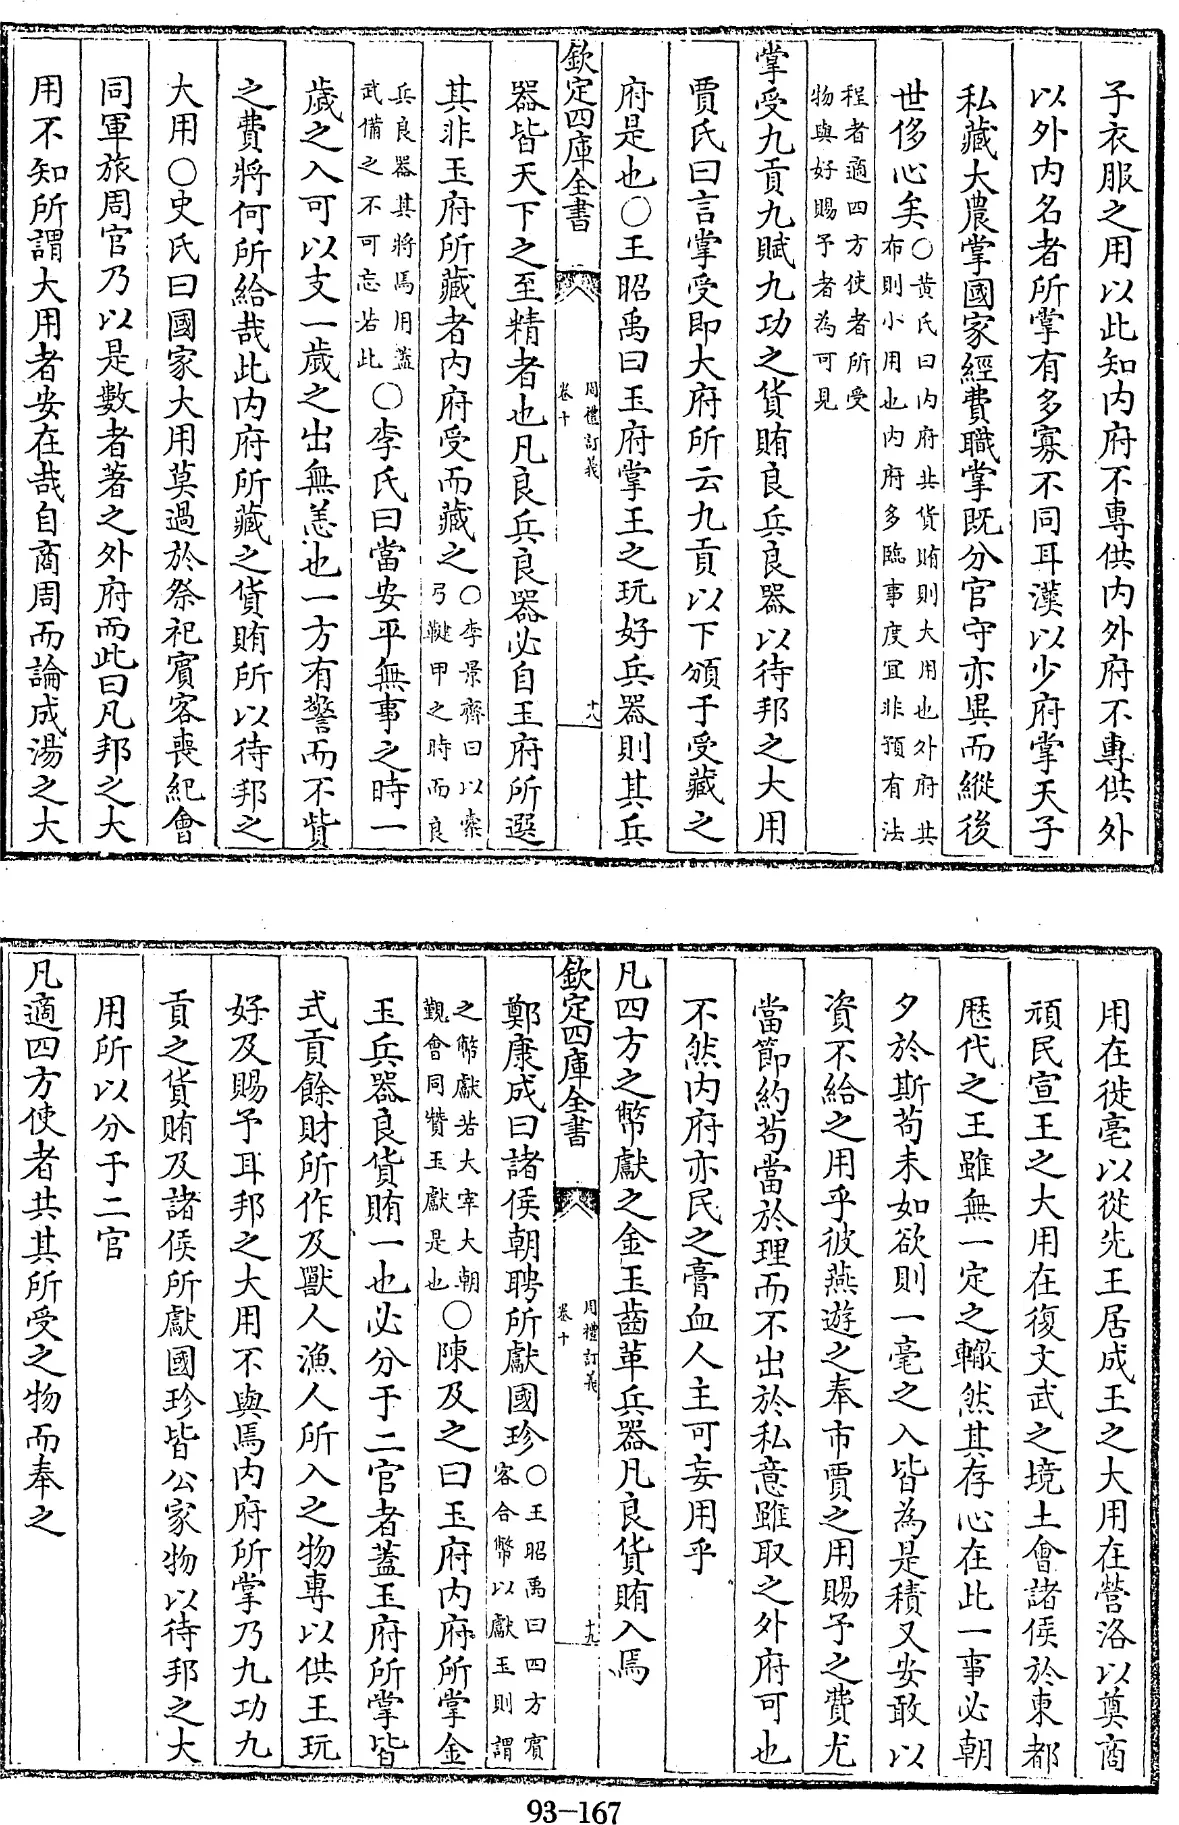 子衣服之用以此知内府不專供内外府不專供外
以外内名者所掌有多寡不同耳漢以少府掌天子
私藏大農掌國家經費職掌既分官守亦異而縱後
世侈心矣○黄氏曰内府共貨賄則大用也外府共
布則小用也内府多臨事度宜非預有法
程者適四方使者所受
物與好賜予者為可見
掌受九貢九賦九功之貨賄良兵良器以待邦之大用
賈氏曰言掌受即大府所云九貢以下頒于受藏之
府是也○王昭禹曰玉府掌王之玩好兵器則其兵
欽定四庫全書
周禮訂義
卷十
十八
器皆天下之至精者也凡良兵良器必自玉府所選
其非玉府所藏者内府受而藏之○李景齊曰以櫜
弓鞬甲之時而良
兵良器其將焉用蓋
武備之不可忘若此○李氏曰當安平無事之時一
歲之入可以支一歲之出無恙也一方有警而不貲
之費將何所給哉此内府所藏之貨賄所以待邦之
大用○史氏曰國家大用莫過於祭祀賓客喪紀會
同軍旅周官乃以是數者著之外府而此曰凡邦之大
用不知所謂大用者安在哉自商周而論成湯之大
用在徙亳以從先王居成王之大用在營洛以奠商
頑民宣王之大用在復文武之境土會諸侯於東都
歴代之王雖無一定之轍然其存心在此一事必朝
夕於斯苟未如欲則一毫之入皆為是積又安敢以
資不給之用乎彼燕遊之奉市賈之用賜予之費尤
當節約苟當於理而不出於私意雖取之外府可也
不然内府亦民之膏血人主可妄用乎
凡四方之幣獻之金玉齒革兵器凡良貨賄入焉
欽定四庫全書
周禮訂義
卷十
十九
鄭康成曰諸侯朝聘所獻國珍○王昭禹曰四方賓
客合幣以獻玉則謂
之幣獻若大宰大朝
覲會同贊玉獻是也○陳及之曰玉府内府所掌金
玉兵器良貨賄一也必分于二官者蓋玉府所掌皆
式貢餘財所作及獸人漁人所入之物專以供王玩
好及賜予耳邦之大用不與焉内府所掌乃九功九
貢之貨賄及諸侯所獻國珍皆公家物以待邦之大
用所以分于二官
凡適四方使者共其所受之物而奉之
93-167